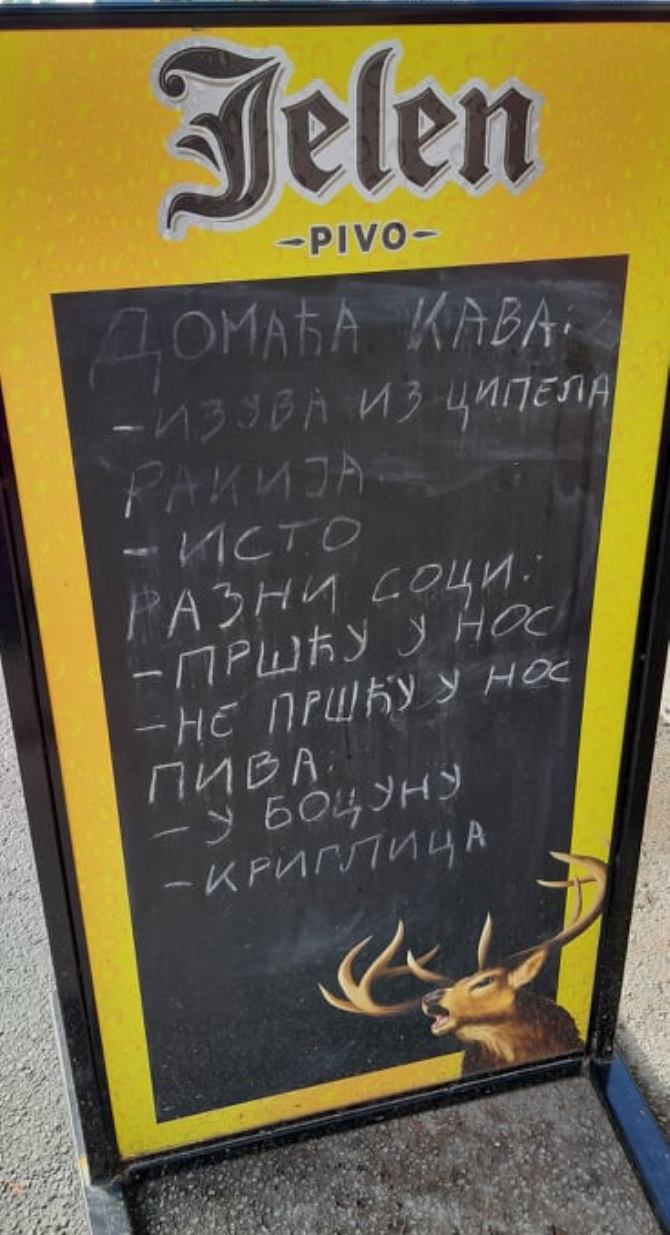 Jelen
-PIVO-
ДОМАЋА КАВА:
-ИЗУВА ИЗ ЦИПЕЛА
РАКИЈА
-ИСТО
РАЗНИ СОЦИ:
-ПРШЋУ У НОС
-НЕ ПРШЋУ У НОС
ПИВА:
-У БОЦУНУ
-КРИГЛИЦА